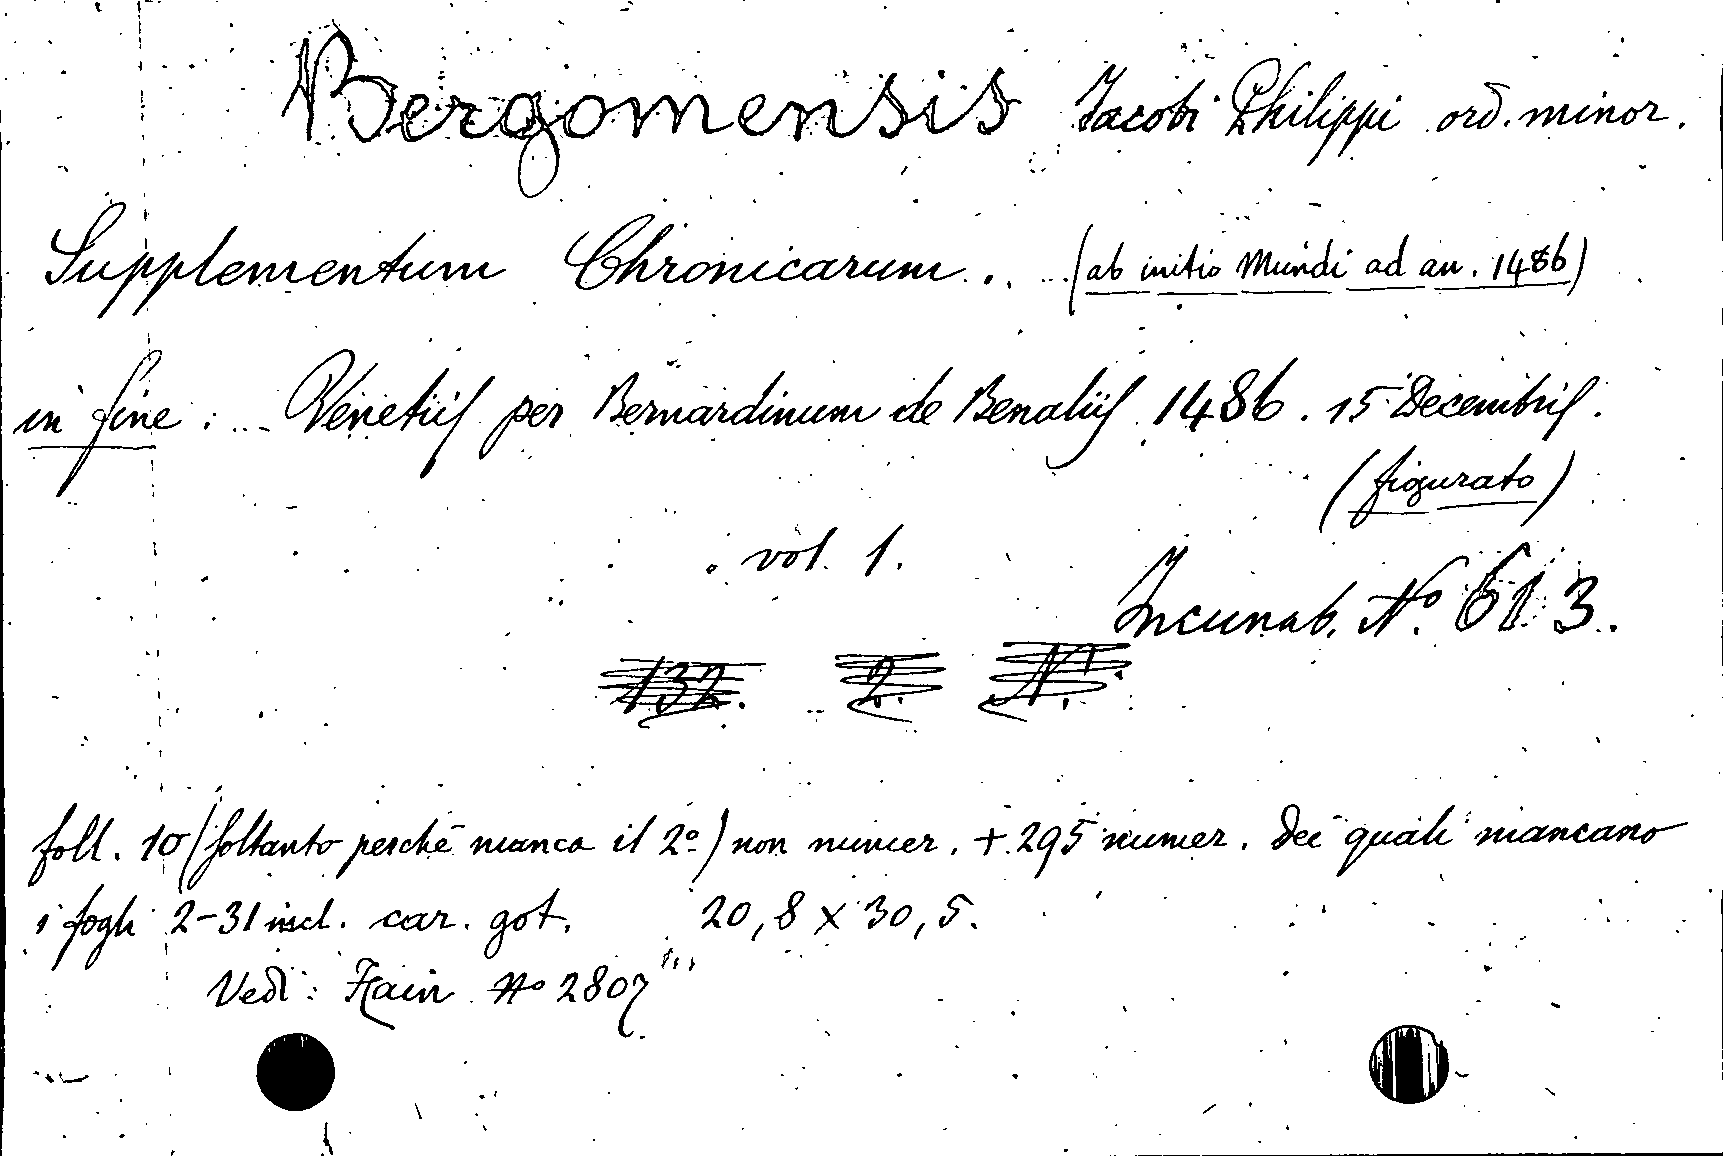 Bergomensis Jacobi Philippi ord. minor.
Supplementum Chronicarum .. (ab initio Mundi ad an. 1486)
in fine : Venetiis per Bernardinum de Benaliis 1486. 15 Decembris.
(figurato)
vol. 1.
Incunab. No. 613.
132. 2. N.
foll. 10 (soltanto perchè manca il 2º) non numer. + 295 numer. dei quali mancano
i fogli 2-31 incl. car. got. 20,8 x 30,5.
Vedi: Hain No 2807